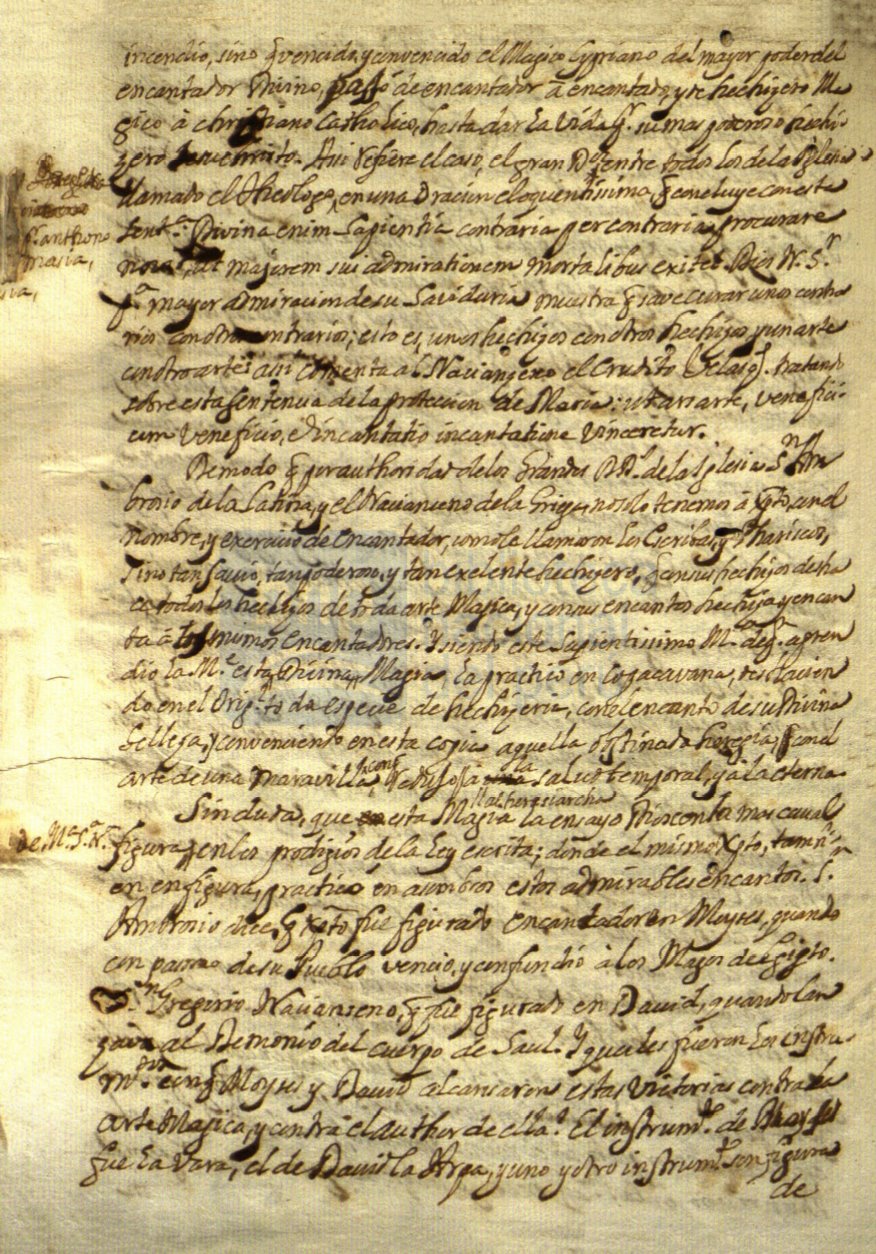 incendio, sino q̃ vencido, y convencido el Magico Cypriano del mayor poder del
encantador Divino, passó de encantador à encantado, y de hechizero Ma
gico à christiano Catholico, hasta dar la vida pr. su mas poderoso hechi
zero Jesuchristo. Assi refiere el caso, el gran Dor. entre todos los de la Iglesia
llamado el Theologo, en una Oracion eloquentissima, q̃ concluye con esta
Senta. Divina enim Sapientia contraria per contraria procurare
novit, ut majorem sui admirationem mortalibus exitet. Dios N. Sr.
pa. mayor admiracion de su Saviduria muestra q̃ save curar unos contra
rios con otros contrarios; esto es, unos hechizos con otros hechizos y un arte
con otro arte: assi comenta al Nacianzeno el erudito Velasqz. tratando
sobre esta sentencia de la proteccion de Maria: ut ars arte, venefici-
um veneficio, et incantatio incantatione vinceretur.
De modo q̃ por authoridad de los grandes DDs. de la Iglesia Sn. Am
brosio de la Latina, y el Nacianseno de la Griega, no solo tenemos à Xpto, con el
nombre, y exercicio de encantador, como le llamaron los Escribas, y Phariseos,
Sino tan savio, tan poderoso, y tan exelente hechizero, q̃ con sus hechizos desha
ce todos los hechizos de toda arte Magica, y con sus encantos hechiza, y encan
ta à los mismos encantadores. Y siendo este Sapientissimo Mo. de qn. apren
dio la Me. esta Divina Magia, la practicó en Copacavana, desclavien
do en el Origl. to da especie de hechizeria, con el encanto de su Divina
belleza, y convenciendo en esta copia aquella obstinada heregia, con el
arte de una maravilla, salud temporal, y à la eterna
al heresiarcha
Sin duda, que esta Magia la ensayo Dios con la mas caval
de Ma. Sa. N.
figura, en los prodigios de la Ley escrita; donde el mismo Xpto, tambi-
en en figura, practicó en asombros estos admirables encantos. S.
Ambrosio dice, q̃ Xpto fue figurado encantador en Moyses, quando
con pasmo de su Pueblo vencio, y confundió à los Magos de Egipto.
Sn. Gregorio Nacianseno, q̃ fue figurado en David, quando lan
zava al Demonio del cuerpo de Saul. Y quales fueron los instru-
mtos. con q̃ Moyses y David alcansaron estas victorias contra la
arte Magica, y contra el author de ella? El instrumto. de Moyses
fue la Vara, el de David la Arpa, y uno y otro instrumto. son figura
de